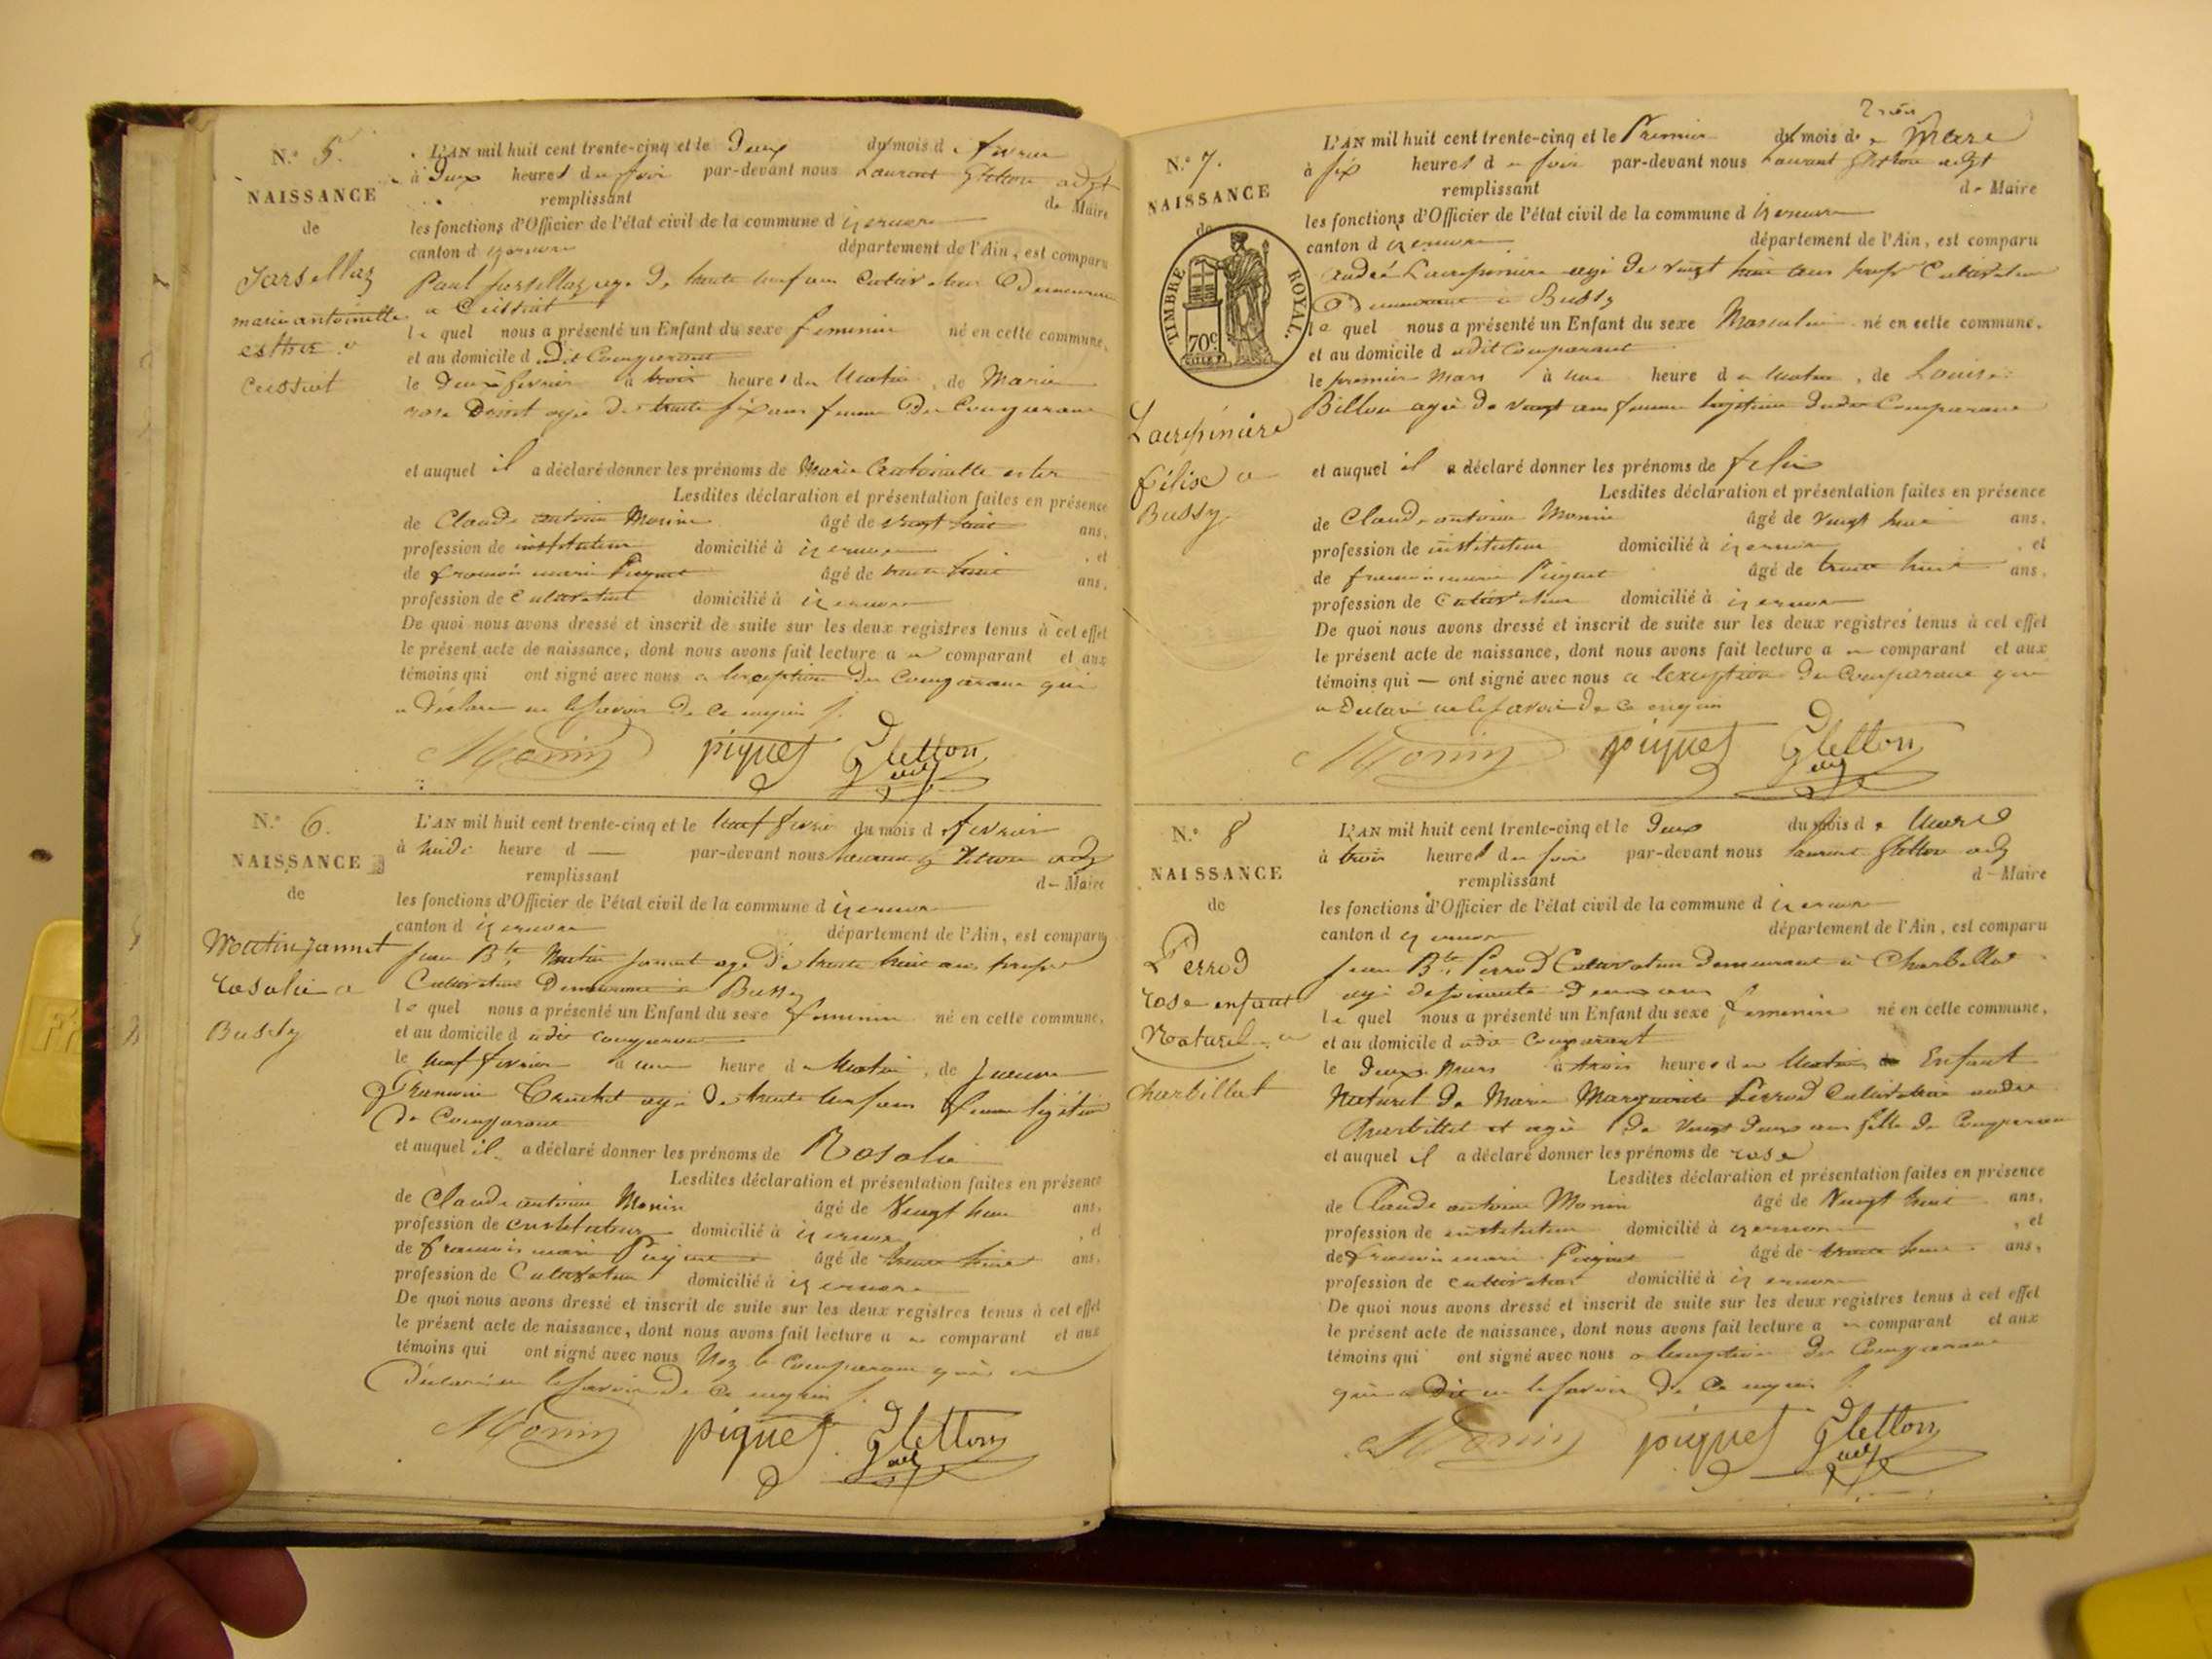 N.° 5.
NAISSANCE
de
Jarsellaz
marie antoinette
esther a
Ceissiat
L'AN mil huit cent trente-cinq et le Deux du mois d e fevrier
à Deux heures du soir par-devant nous Laurent Gletton adjt
remplissant de Maire
les fonctions d'Officier de l'état civil de la commune d izernore
canton d izernore département de l'Ain, est comparu
Paul Jarsellaz age De trente neuf ans Cultivateur Demeurant
a Ceissiat
le quel nous a présenté un Enfant du sexe feminin né en cette commune,
et au domicile d udit Comparant
le Deux fevrier à trois heures du Matin, de Marie
rose agée De trente six ans femme Du Comparant
et auquel il a déclaré donner les prénoms de Marie Antoinette ester
Lesdites déclaration et présentation faites en présence
de Claude antoine Monin âgé de vingt huit ans,
profession de instituteur domicilié à izernore, et
de francois marie Piquet âgé de trente huit ans,
profession de Cultivateur domicilié à izernore
De quoi nous avons dressé et inscrit de suite sur les deux registres tenus à cet effet
le présent acte de naissance, dont nous avons fait lecture a u comparant et aux
témoins qui ont signé avec nous a lexception Du Comparant qui
a Déclaré ne le savoir De ce enquis
Monin piquet Gletton adj
N.° 6.
NAISSANCE
de
Moutin jannet
rosalie a
Bussy
L'AN mil huit cent trente-cinq et le Neuf fevrier du mois d e fevrier
à midi heure d — par-devant nous Laurent Gletton adj
remplissant d— Maire
les fonctions d'Officier de l'état civil de la commune d izernore
canton d izernore département de l'Ain, est comparu
jean Bte Moutin jannet age De trente huit ans profon
Cultivateur Demeurant a Bussy
le quel nous a présenté un Enfant du sexe feminin né en cette commune,
et au domicile d udit comparant
le neuf fevrier à une heure du Matin, de
agée De trente neuf ans femme legitime
Du Comparant
et auquel il a déclaré donner les prénoms de Rosalie
Lesdites déclaration et présentation faites en présence
de Claude antoine Monin âgé de Vingt huit ans,
profession de instituteur domicilié à izernore, et
de francois marie Piquet âgé de trente huit ans,
profession de Cultivateur domicilié à izernore
De quoi nous avons dressé et inscrit de suite sur les deux registres tenus à cet effet
le présent acte de naissance, dont nous avons fait lecture a u comparant et aux
témoins qui ont signé avec nous Non le Comparant qui a
Déclaré ne le savoir De ce enquis
Monin piquet Gletton adj
N.° 7.
NAISSANCE
de
TIMBRE ROYAL.
70c
Lacrepiniere
félix a
Bussy
L'AN mil huit cent trente-cinq et le Premier du mois de Mars
à six heures d u soir par-devant nous Laurent Gletton adjt
remplissant de Maire
les fonctions d'Officier de l'état civil de la commune d izernore
canton d izernore département de l'Ain, est comparu
andré Lacrepiniere agé de vingt huit ans profon Cultivateur
Demeurant a Bussy
le quel nous a présenté un Enfant du sexe Masculin né en cette commune,
et au domicile d udit comparant
le premier Mars à une heure d u Matin, de Louise
Billon agée De vingt ans femme legitime Dudit Comparant
et auquel il a déclaré donner les prénoms de felix
Lesdites déclaration et présentation faites en présence
de Claude antoine Monin âgé de vingt huit ans,
profession de instituteur domicilié à izernore, et
de francois marie Piquet âgé de trente huit ans,
profession de Cultivateur domicilié à izernore
De quoi nous avons dressé et inscrit de suite sur les deux registres tenus à cet effet
le présent acte de naissance, dont nous avons fait lecture a u comparant et aux
témoins qui — ont signé avec nous a lexception Du Comparant qui
a Declaré ne le savoir De ce enquis
Monin piquet Gletton adj
N.° 8
NAISSANCE
de
Perrod
rose enfant
Naturel a
Charbillat
L'AN mil huit cent trente-cinq et le Deux du mois d e Mars
à trois heures du soir par-devant nous Laurent Gletton adj
remplissant d— Maire
les fonctions d'Officier de l'état civil de la commune d izernore
canton d izernore département de l'Ain, est comparu
jean Bte Perrod Cultivateur Demeurant a Charbillat
agé de soixante Deux ans
le quel nous a présenté un Enfant du sexe feminin né en cette commune,
et au domicile d udit Comparant
le Deux Mars à trois heures d u Matin Enfant
Naturel De Marie Marguerite Perrod Cultivatrice audit
Charbillat et agée De Vingt Deux ans fille Du Comparant
et auquel il a déclaré donner les prénoms de rose
Lesdites déclaration et présentation faites en présence
de Claude antoine Monin âgé de Vingt huit ans,
profession de instituteur domicilié à izernore, et
de francois marie Piquet âgé de trente huit ans,
profession de cultivateur domicilié à izernore
De quoi nous avons dressé et inscrit de suite sur les deux registres tenus à cet effet
le présent acte de naissance, dont nous avons fait lecture a u comparant et aux
témoins qui ont signé avec nous a lexception Du Comparant
qui a Dit ne le savoir De ce enquis
Monin piquet Gletton adj